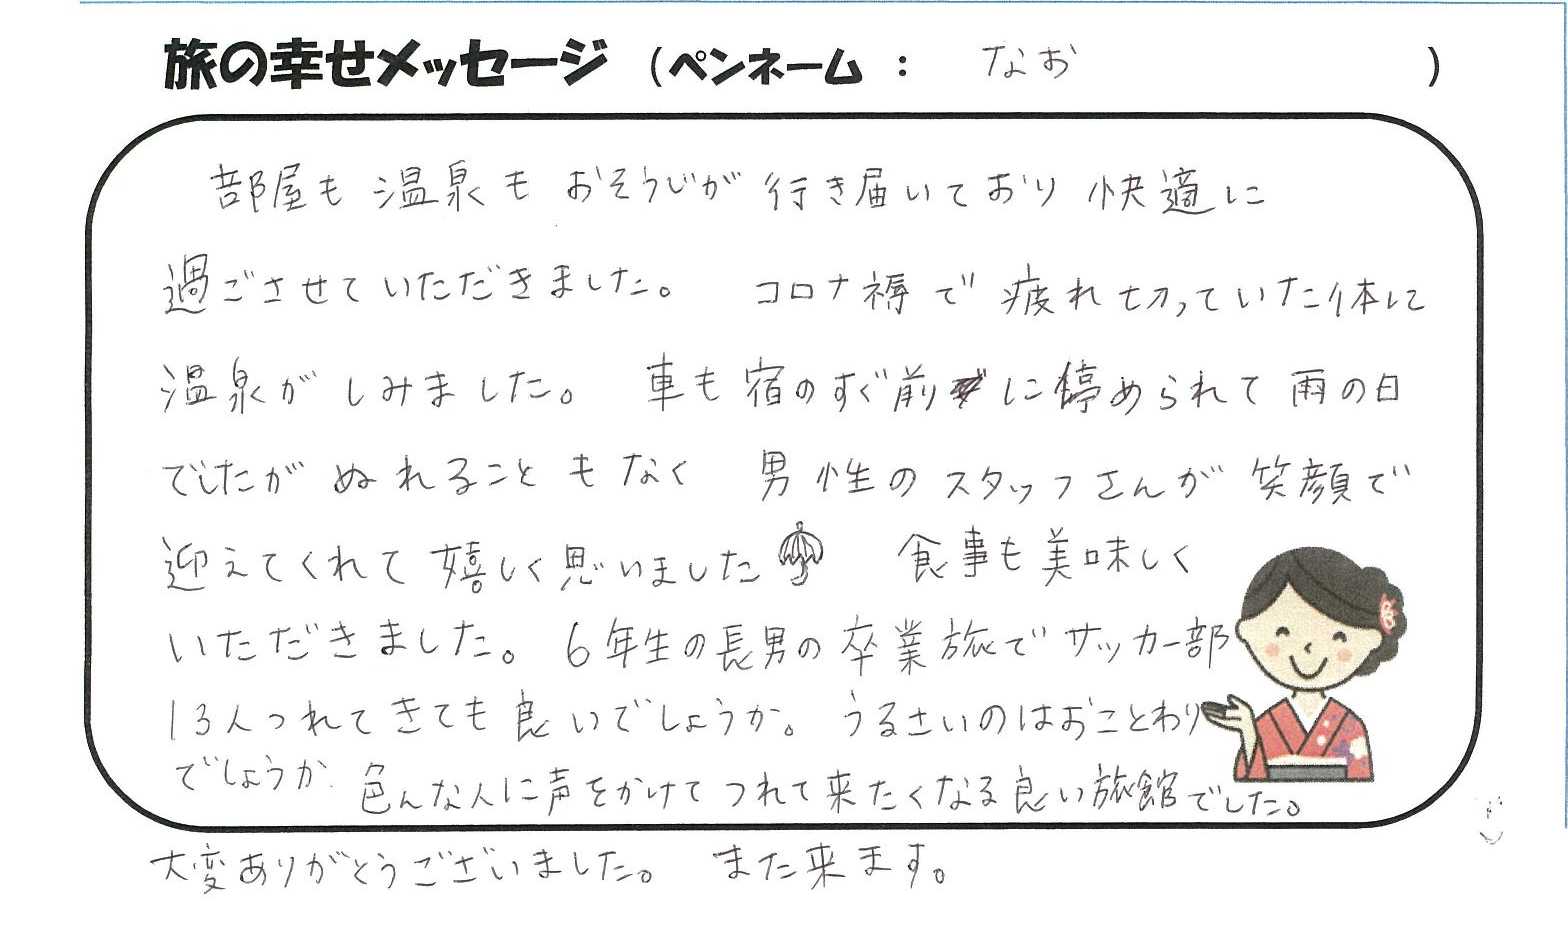 旅の幸せメッセージ (ペンネーム : なお )
部屋も温泉も おそうじが 行き届いており 快適に
過ごさせていただきました。 コロナ禍で 疲れ切っていた体に
温泉が しみました。 車も宿のすぐ前に停められて 雨の日
でしたが ぬれることもなく 男性のスタッフさんが 笑顔で
迎えてくれて 嬉しく思いました 食事も美味しく
いただきました。 6年生の長男の卒業旅でサッカー部
13人つれてきても良いでしょうか。 うるさいのはおことわり
でしょうか. 色んな人に声をかけてつれて来たくなる良い旅館でした。
大変ありがとうございました。 また来ます。